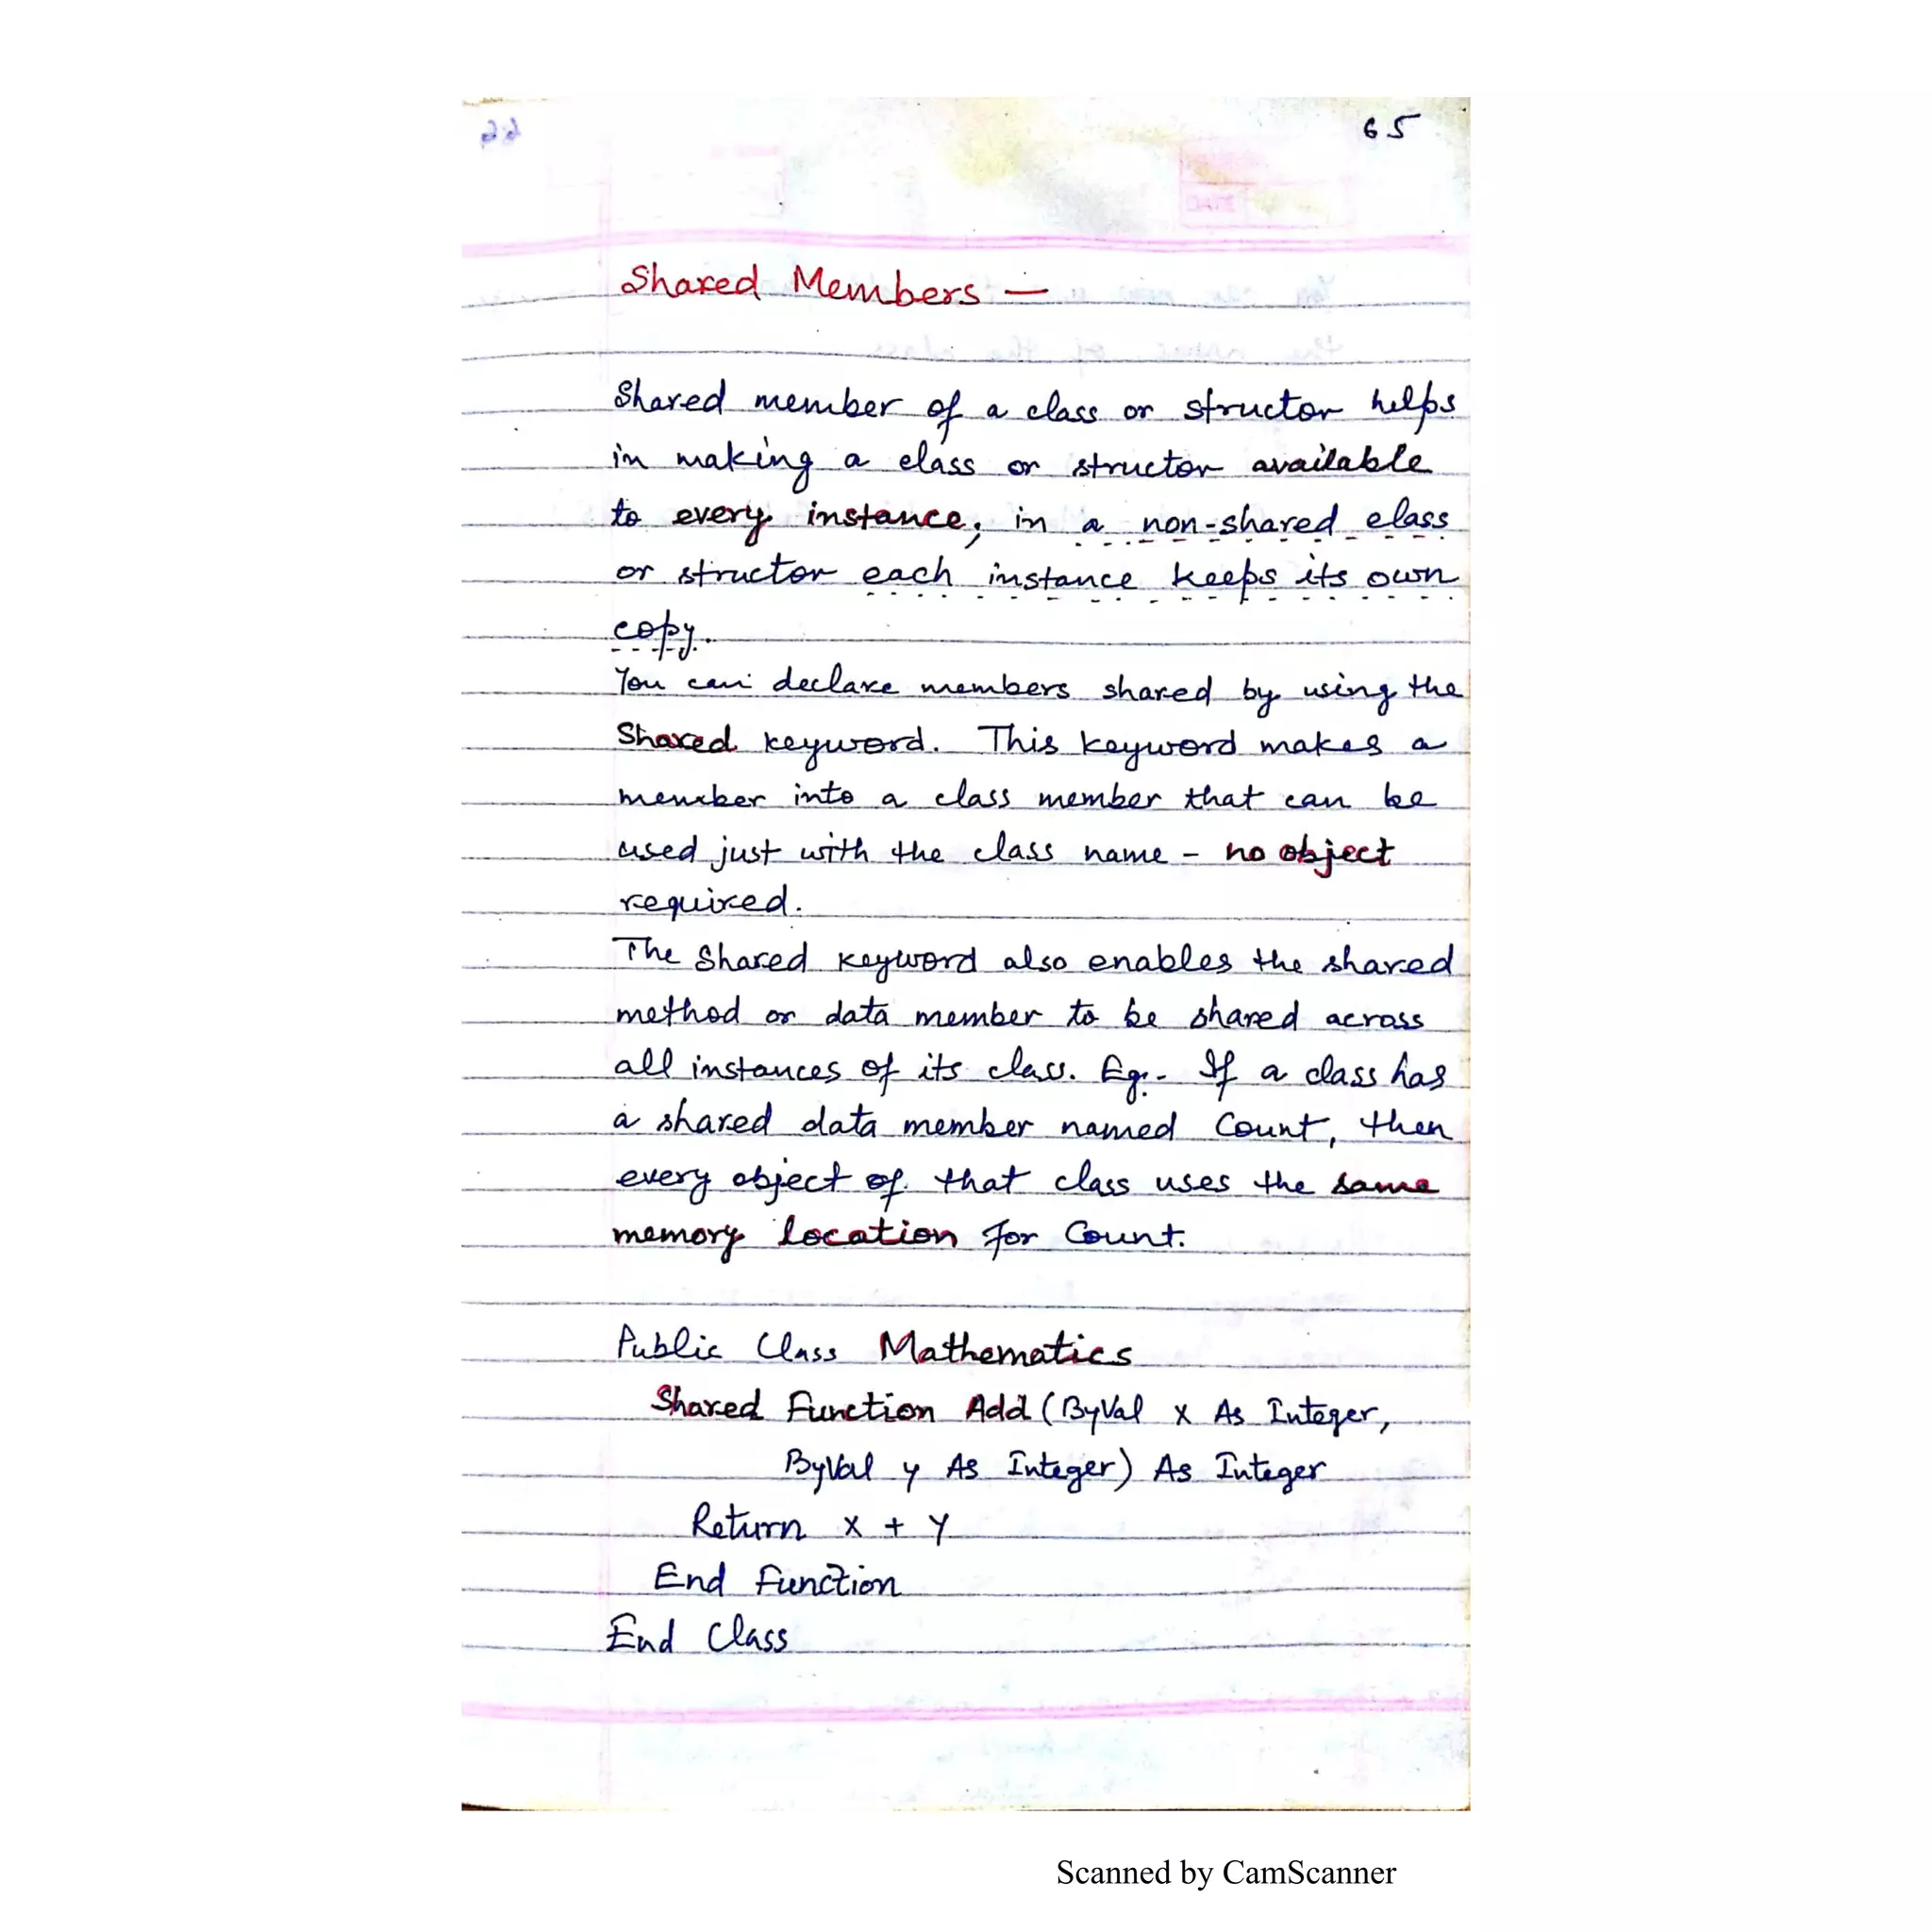 65
Shared Members —
Shared member of a class or structor helps
in making a class or structor available
to every instance, in a non-shared class
or structor each instance keeps its own
copy.
You can declare members shared by using the
Shared keyword. This keyword makes a
member into a class member that can be
used just with the class name - no object
required.
The Shared keyword also enables the shared
method or data member to be shared across
all instances of its class. Eg:- If a class has
a shared data member named Count, then
every object of that class uses the same
memory location for Count.
Public Class Mathematics
Shared Function Add (ByVal x As Integer,
ByVal y As Integer) As Integer
Return x + y
End Function
End Class
Scanned by CamScanner